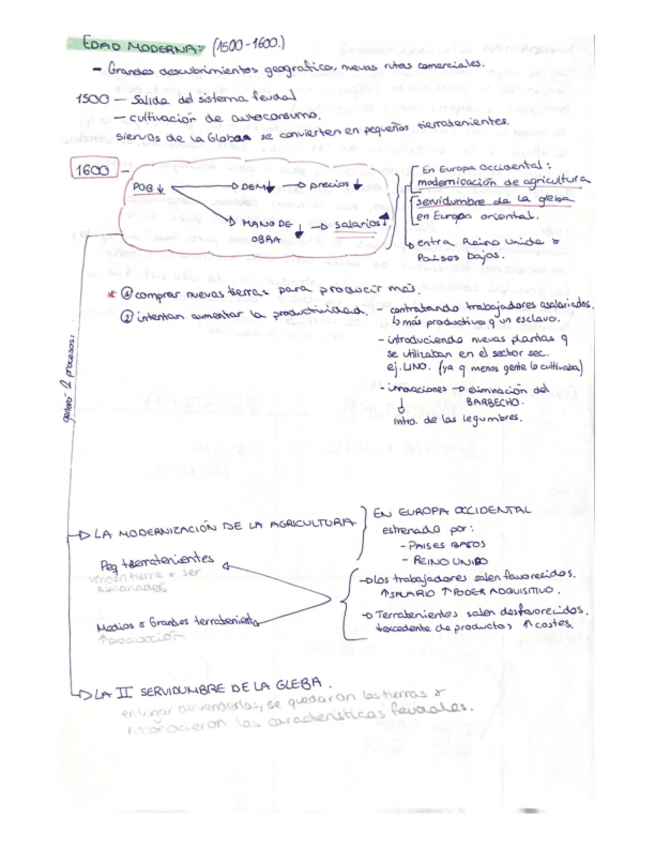 EDAD MODERNA: (1500-1600.)
- Grandes descubrimientos geografico, nuevas rutas comerciales.
1500 - Salida del sistema feudal
- cultivación de autoconsumo.
siervos de la Gleba se convierten en pequeños tierratenientes.
1600 -
POB ↓
→ DEM ↓ → precios ↓
→ MANO DE OBRA ↓ → salarios
En Europa Occidental:
modernización de agricultura
servidumbre de la gleba
en Europa oriental.
entra Reino Unido &
Paises bajos.
* ① comprar nuevas tierras para producir más.
② intentan aumentar la productividad. - contratando trabajadores asalariados.
↳ más productivo q un esclavo.
- introduciendo nuevas plantas q
se utilizaban en el sector sec.
ej. LINO. (ya q menos gente lo cultivaba)
- innovaciones → eliminación del
BARBECHO.
↓
intro. de las legumbres.
generó 2 procesos:
→ LA MODERNIZACIÓN DE LA AGRICULTURA
EN EUROPA OCCIDENTAL
estrenado por:
- PAISES BAJOS
- REINO UNIDO
Peq terratenientes
venden tierra & ser
asalariados
Medios & Grandes terratenients
↑ producción
→ Los trabajadores salen favorecidos.
↑ SALARIO ↑ PODER ADQUISITIVO.
→ Terratenientes salen desfavorecidos.
↑excedente de productos ↑ costes.
→ LA II SERVIDUMBRE DE LA GLEBA.
en lugar de venderlas, se quedaron las tierras &
las características feudales.